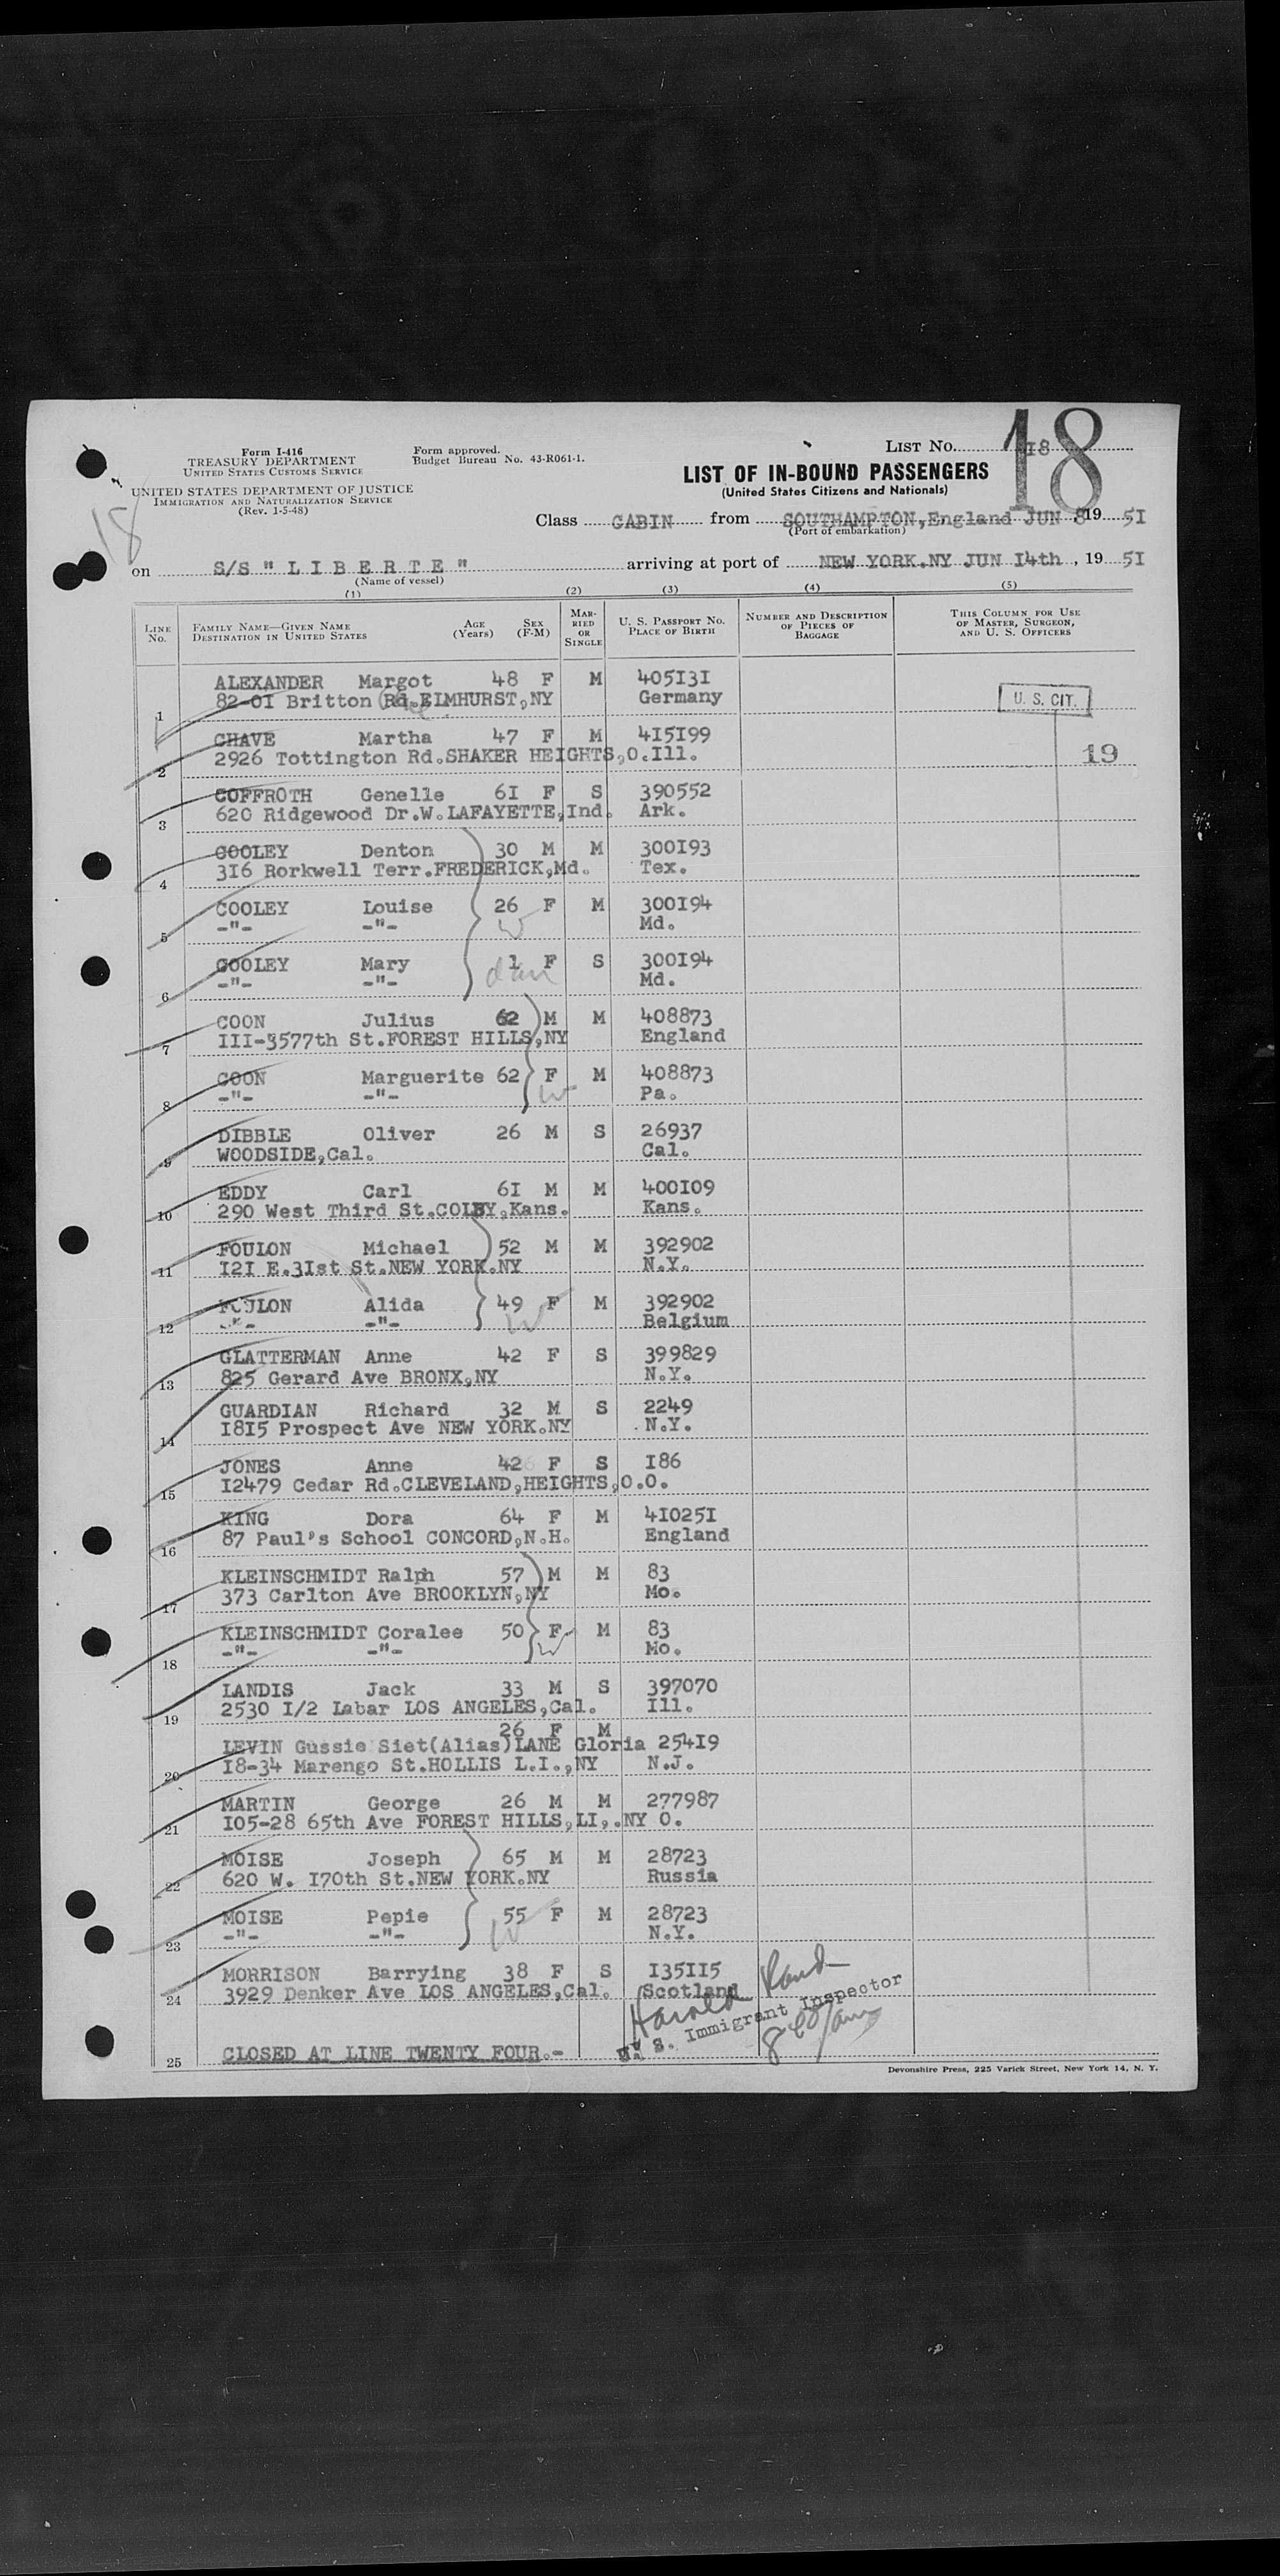 Form I-416
TREASURY DEPARTMENT
UNITED STATES CUSTOMS SERVICE
UNITED STATES DEPARTMENT OF JUSTICE
IMMIGRATION AND NATURALIZATION SERVICE
(Rev. 1-5-48)
Form approved.
Budget Bureau No. 43-R061-1.
LIST No. 18
18
18
LIST OF IN-BOUND PASSENGERS
(United States Citizens and Nationals)
Class CABIN from SOUTHAMPTON,England JUN 8 19 5I
(Port of embarkation)
on S/S " L I B E R T E " arriving at port of NEW YORK.NY JUN I4th , 19 5I
(Name of vessel)
(1) (2) (3) (4) (5)
LINE No. FAMILY NAME—GIVEN NAME DESTINATION IN UNITED STATES AGE (Years) SEX (F-M) MARRIED OR SINGLE U. S. PASSPORT NO. PLACE OF BIRTH NUMBER AND DESCRIPTION OF PIECES OF BAGGAGE THIS COLUMN FOR USE OF MASTER, SURGEON, AND U. S. OFFICERS
ALEXANDER Margot 48 F M 405I3I
1 82-0I Britton Rd.ELMHURST,NY Germany U. S. CIT.
CHAVE Martha 47 F M 4I5I99
2 2926 Tottington Rd.SHAKER HEIGHTS,O.Ill. 19
COFFROTH Genelle 6I F S 390552
3 620 Ridgewood Dr.W.LAFAYETTE,Ind. Ark.
COOLEY Denton 30 M M 300I93
4 3I6 Rorkwell Terr.FREDERICK,Md. Tex.
COOLEY Louise 26 F M 300I94
5 -"- -"- W Md.
COOLEY Mary 1 F S 300I94
6 -"- -"- dau Md.
COON Julius 62 M M 408873
7 III-3577th St.FOREST HILLS,NY England
COON Marguerite 62 F M 408873
8 -"- -"- W Pa.
DIBBLE Oliver 26 M S 26937
9 WOODSIDE,Cal. Cal.
EDDY Carl 6I M M 400I09
10 290 West Third St.COLBY,Kans. Kans.
FOULON Michael 52 M M 392902
11 I2I E.3Ist St.NEW YORK.NY N.Y.
FOULON Alida 49 F M 392902
12 -"- -"- W Belgium
GLATTERMAN Anne 42 F S 399829
13 825 Gerard Ave BRONX,NY N.Y.
GUARDIAN Richard 32 M S 2249
14 I8I5 Prospect Ave NEW YORK.NY N.Y.
JONES Anne 42 F S I86
15 I2479 Cedar Rd.CLEVELAND,HEIGHTS,O.O.
KING Dora 64 F M 4I025I
16 87 Paul's School CONCORD,N.H. England
KLEINSCHMIDT Ralph 57 M M 83
17 373 Carlton Ave BROOKLYN,NY Mo.
KLEINSCHMIDT Coralee 50 F M 83
18 -"- -"- W Mo.
LANDIS Jack 33 M S 397070
19 2530 I/2 Labar LOS ANGELES,Cal. Ill.
26 F M
LEVIN Gussie Siet(Alias)LANE Gloria 254I9
20 I8-34 Marengo St.HOLLIS L.I.,NY N.J.
MARTIN George 26 M M 277987
21 I05-28 65th Ave FOREST HILLS,LI,.NY O.
MOISE Joseph 65 M M 28723
22 620 W. I70th St.NEW YORK.NY Russia
MOISE Pepie 55 F M 28723
23 -"- -"- W N.Y.
MORRISON Barrying 38 F S I35II5
24 3929 Denker Ave LOS ANGELES,Cal. Scotland
Harold Rand
U. S. Immigrant Inspector
25 CLOSED AT LINE TWENTY FOUR.-
Devonshire Press, 225 Varick Street, New York 14, N. Y.